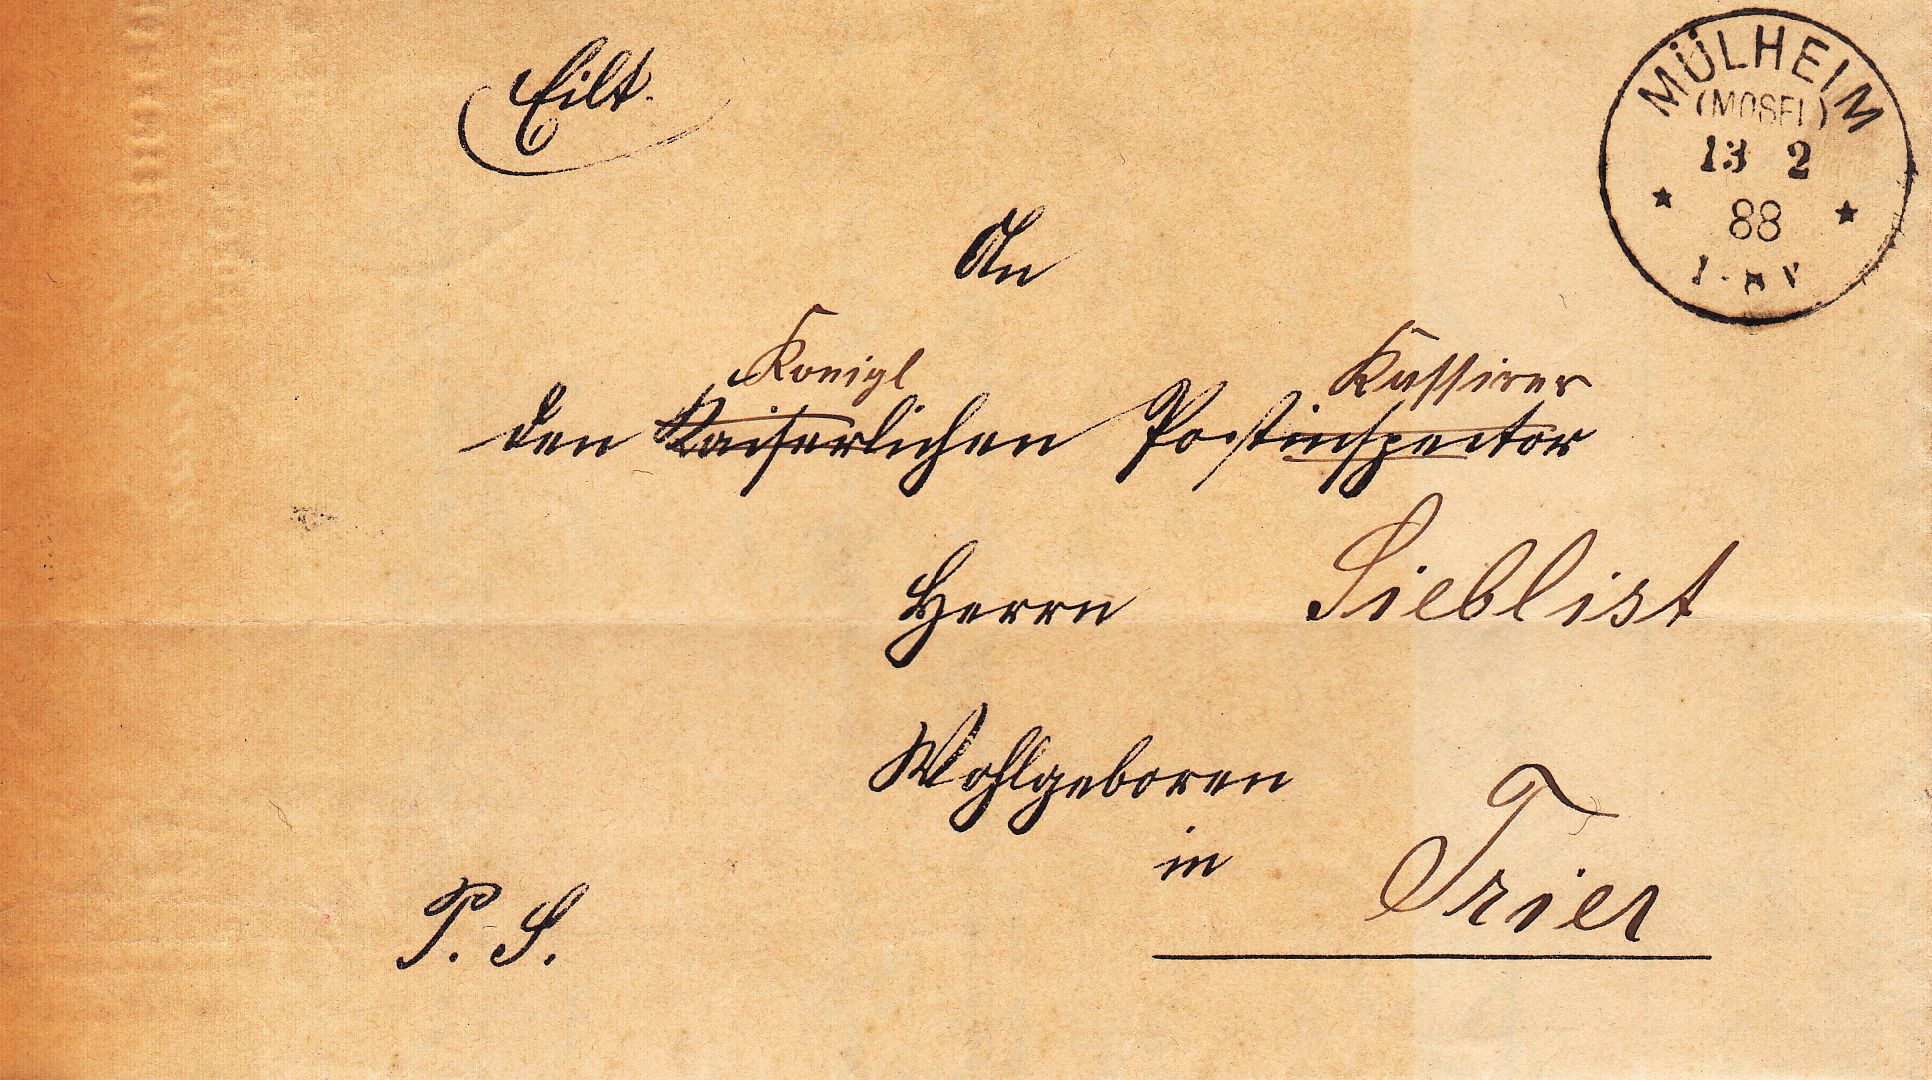 Eilt.
MÜLHEIM
(MOSEL)
13 2
88
An
Königl Kassirer
den Kaiserlichen Postinspector
Herrn Sieblist
Wohlgeboren
in Trier
P. S.